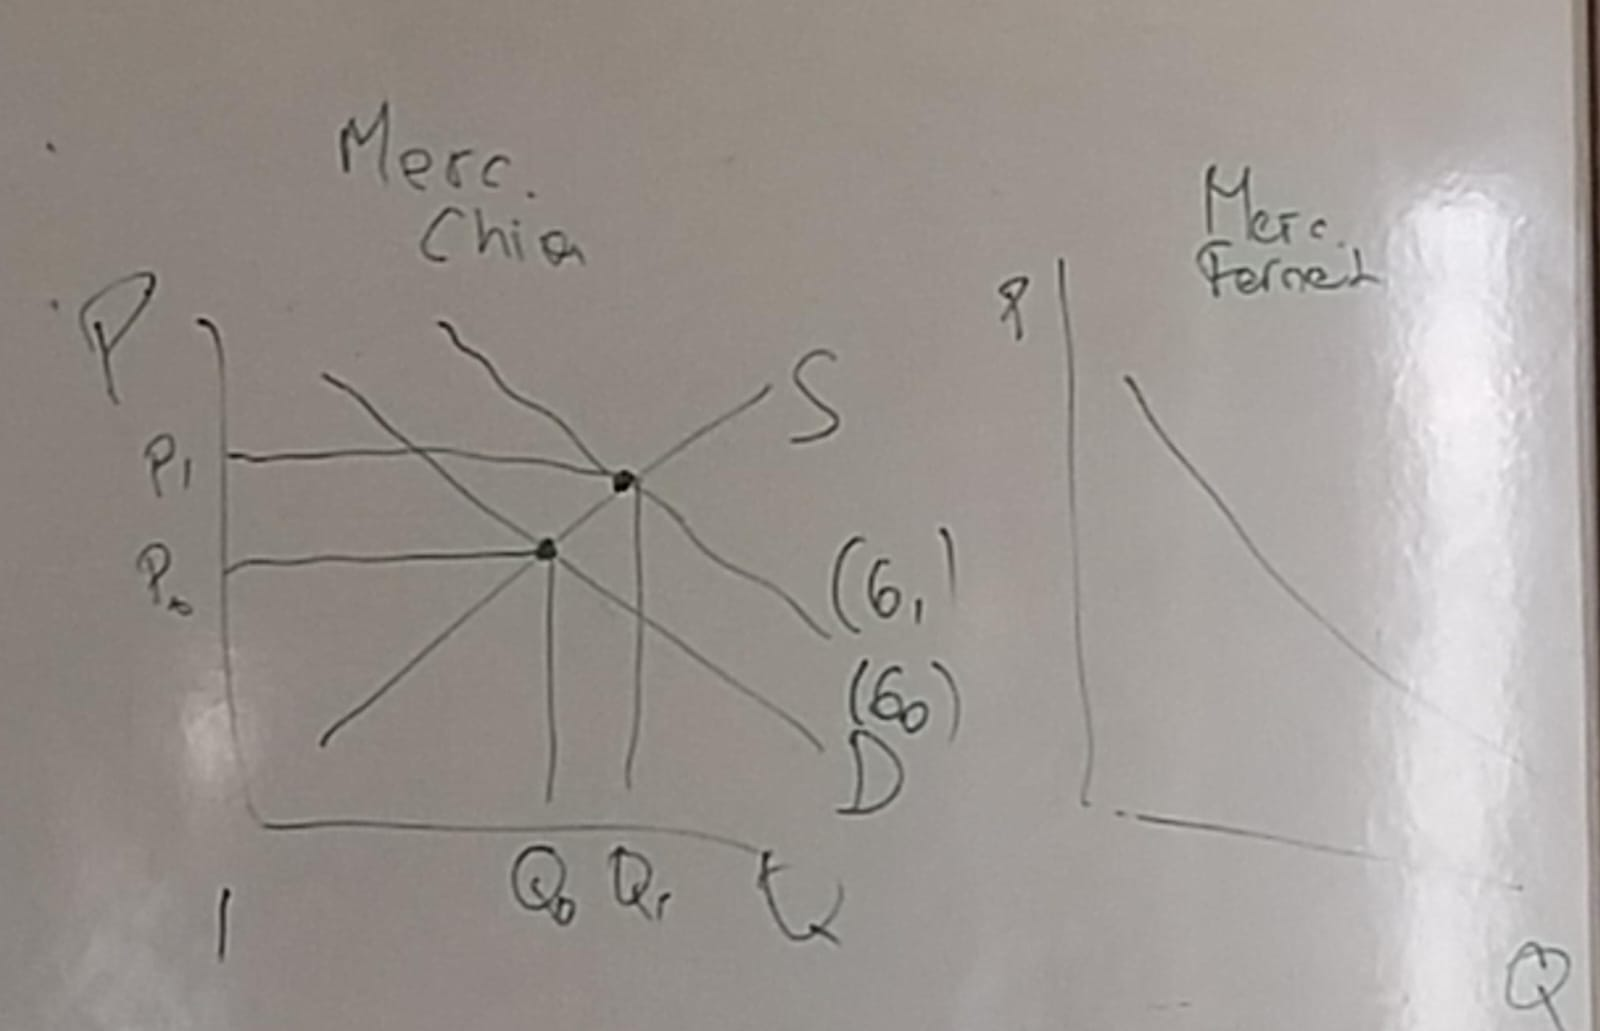 Merc.
Chia
P
S
P₁
P₀
(G₁)
(G₀)
D
Q₀ Q₁ Q
1
Merc.
Fernet
P
Q